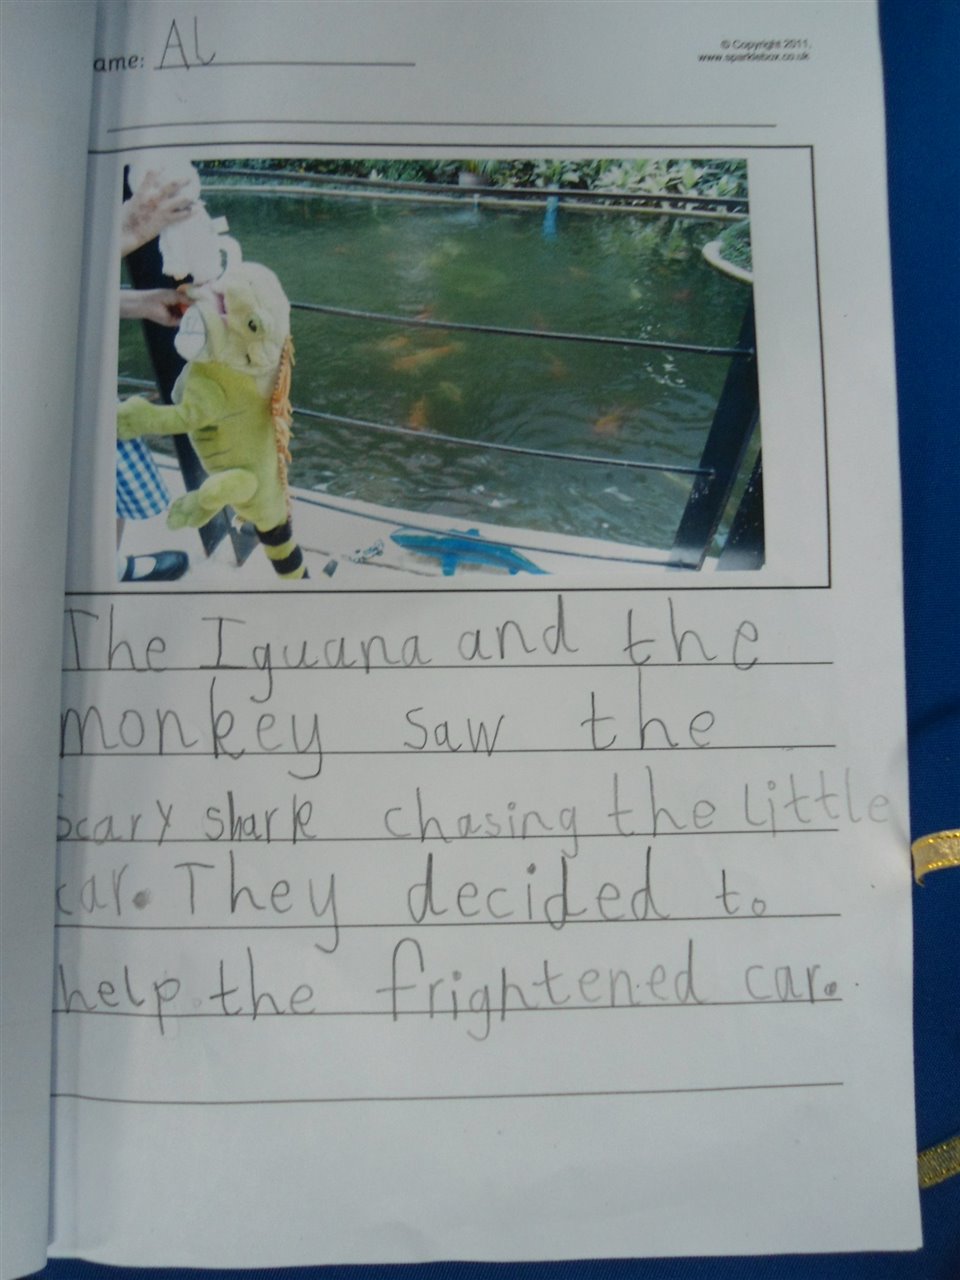 ame: Al
© Copyright 2011,
www.sparklebox.co.uk
The Iguana and the
monkey saw the
scary shark chasing the little
car. They decided to
help the frightened car.